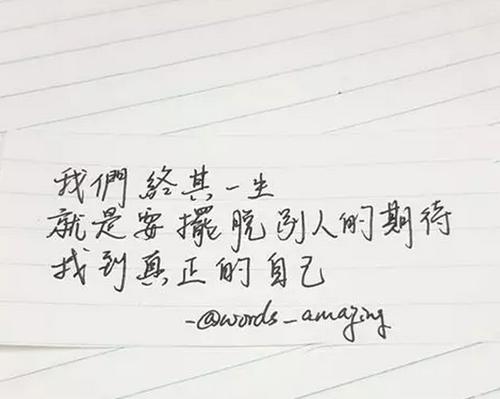 我們終其一生
就是要擺脫別人的期待
找到真正的自己
-@words_amazing